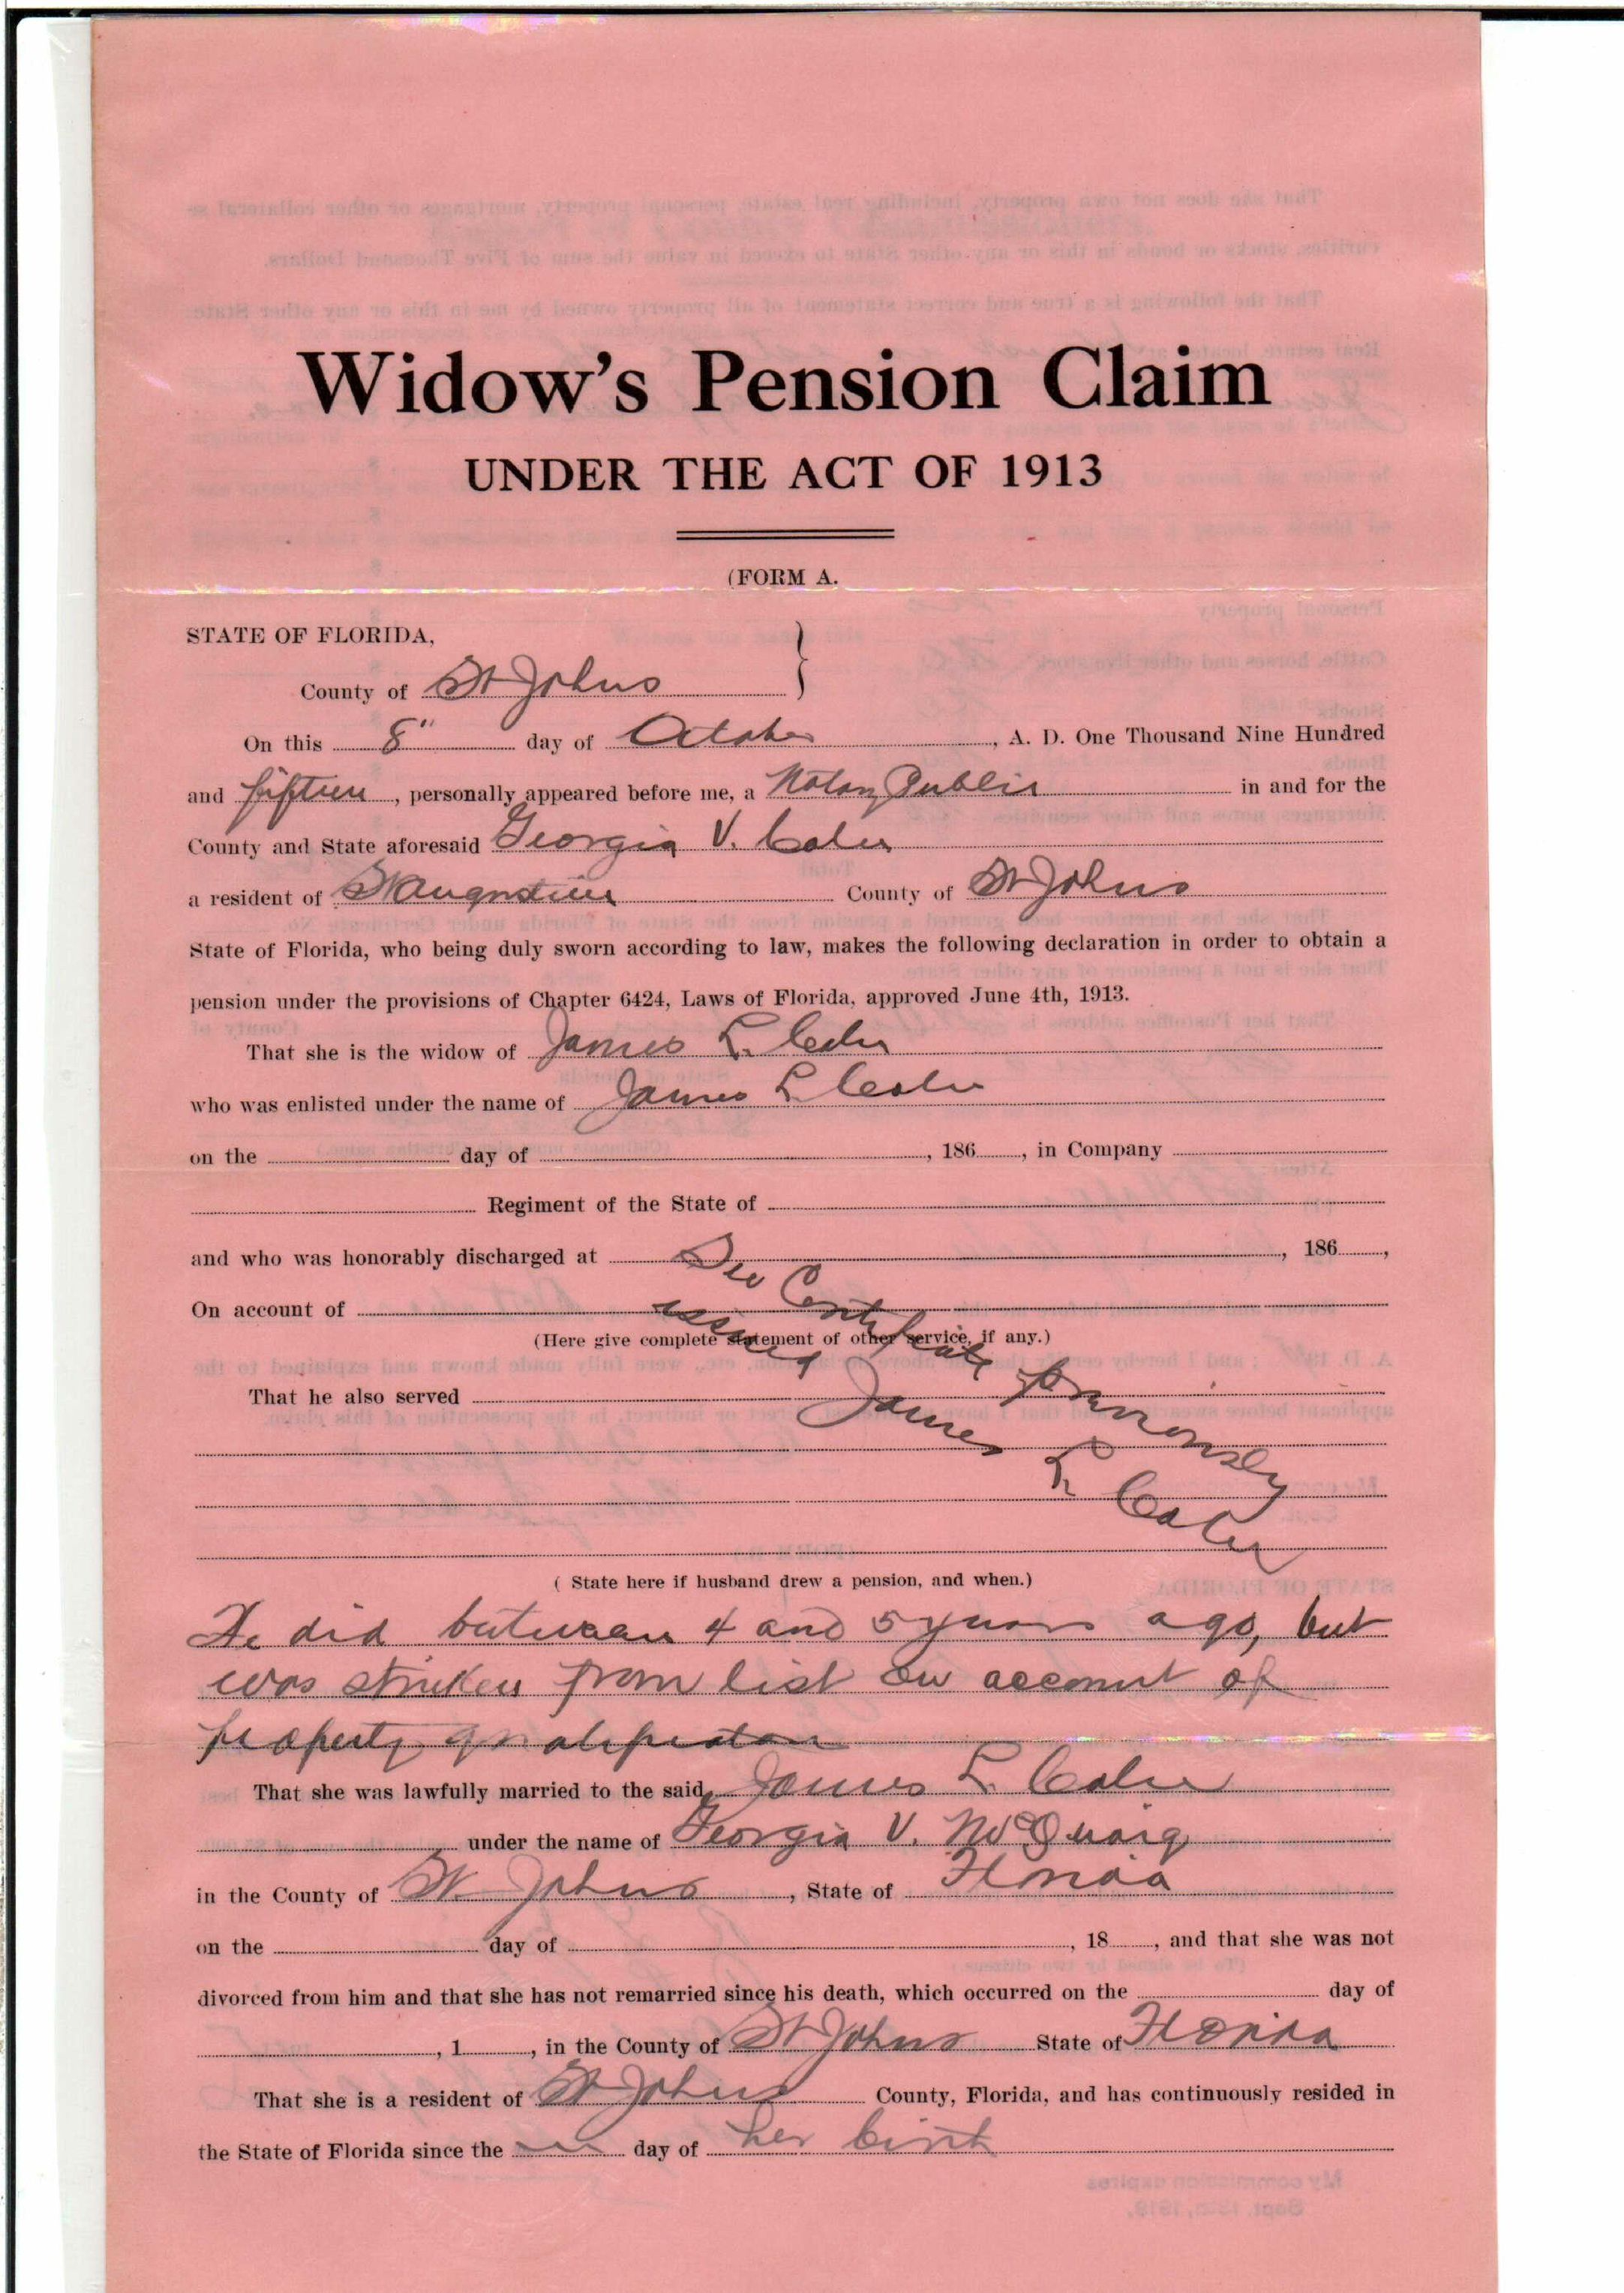 Widow's Pension Claim
UNDER THE ACT OF 1913
(FORM A.
STATE OF FLORIDA,
County of St Johns
On this 8" day of October, A. D. One Thousand Nine Hundred
and fifteen, personally appeared before me, a Notary Public in and for the
County and State aforesaid Georgia V. Colee
a resident of St Augustine County of St Johns
State of Florida, who being duly sworn according to law, makes the following declaration in order to obtain a
pension under the provisions of Chapter 6424, Laws of Florida, approved June 4th, 1913.
That she is the widow of James L. Colee
who was enlisted under the name of James L Colee
on the day of , 186 , in Company
Regiment of the State of
and who was honorably discharged at , 186 ,
On account of
(Here give complete statement of other service, if any.)
That he also served
See Certificate previously
issued James L Colee
( State here if husband drew a pension, and when.)
He did between 4 and 5 years ago, but
was stricken from list on account of
property qualification
That she was lawfully married to the said James L. Colee
under the name of Georgia V. McQuaig
in the County of St. Johns, State of Florida
on the day of , 18 , and that she was not
divorced from him and that she has not remarried since his death, which occurred on the day of
, 1 , in the County of St Johns State of Florida
That she is a resident of St Johns County, Florida, and has continuously resided in
the State of Florida since the day of her birth